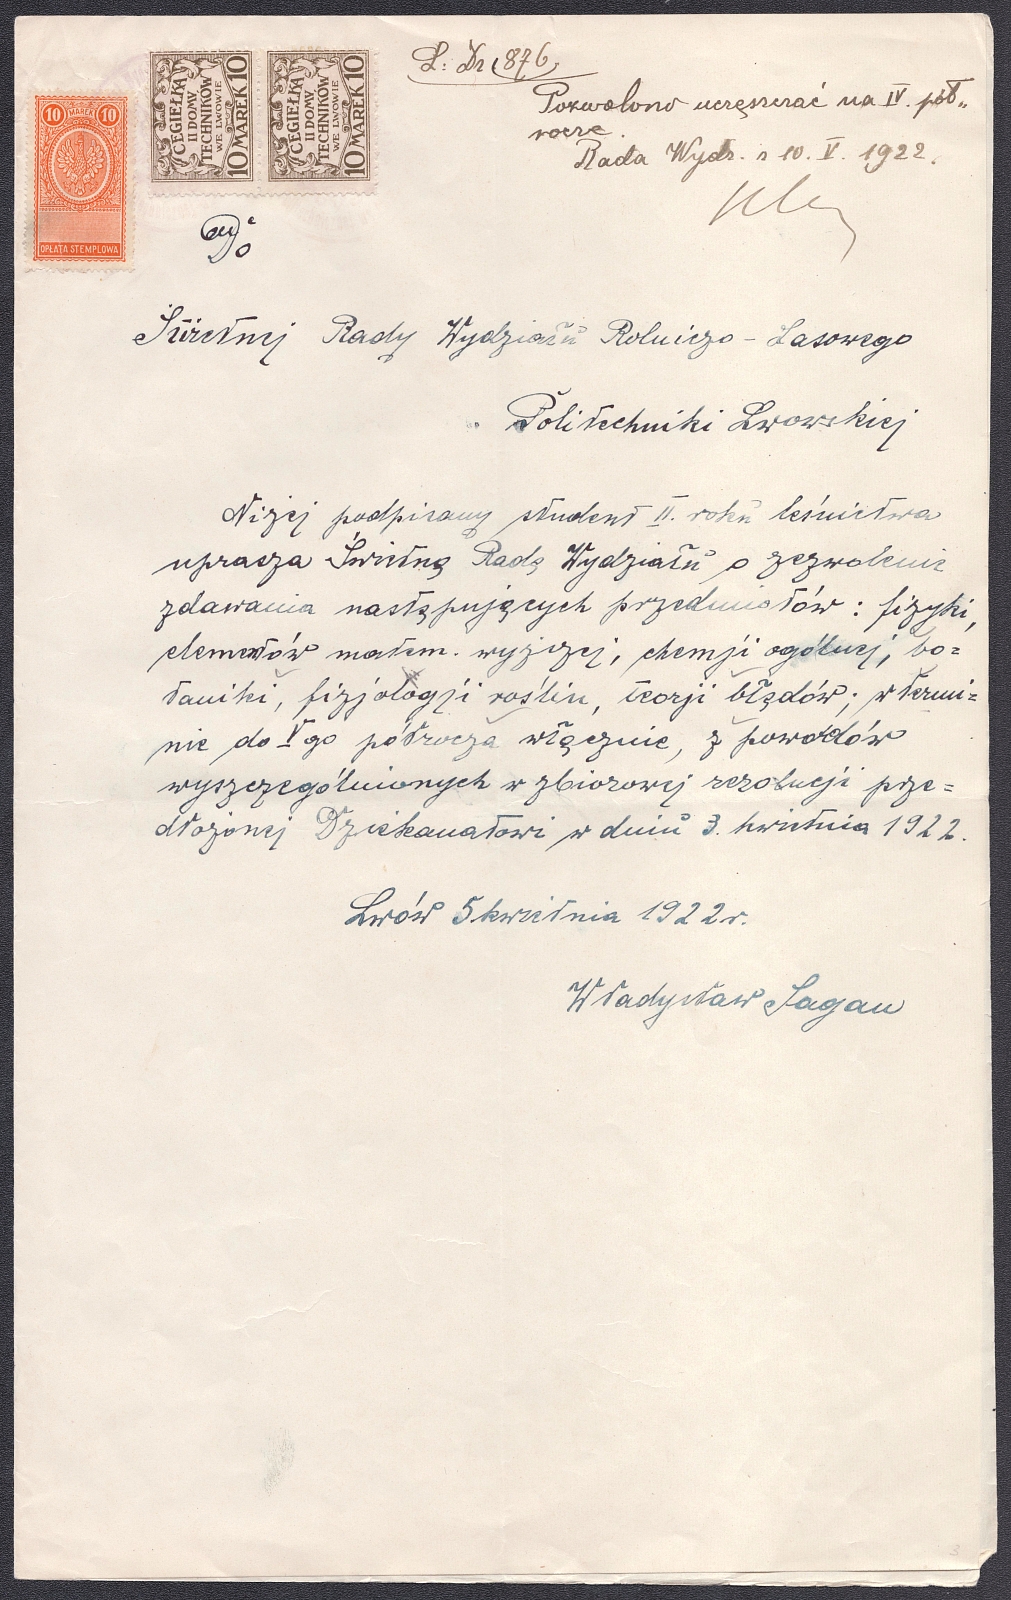 L: Dz. 876
Pozwolono uczęszczać na IV. pół„
rocze.
Rada Wydz. z 10. V. 1922.
10 MAREK 10
OPŁATA STEMPLOWA
CEGIEŁKA
II DOMV
TECHNIKÓW
WE LWOWIE
10 MAREK 10
CEGIEŁKA
II DOMV
TECHNIKÓW
WE LWOWIE
10 MAREK 10
Do
Świetnej Rady Wydziału Rolniczo - Lasowego
Politechniki Lwowskiej
Niżej podpisany student II. roku leśnictwa
uprasza Świetną Radę Wydziału o zezwolenie
zdawania następujących przedmiotów: fizyki,
elementów matem. wyższej, chemji ogólnej, bo=
taniki, fizjologji roślin, teorji błędów; w termi=
nie do V go półrocza włącznie, z powodów
wyszczególnionych w zbiorowej rezolucji prze=
dłożonej Dziekanatowi w dniu 3. kwietnia 1922.
Lwów 5 kwietnia 1922 r.
Władysław Sagan
3